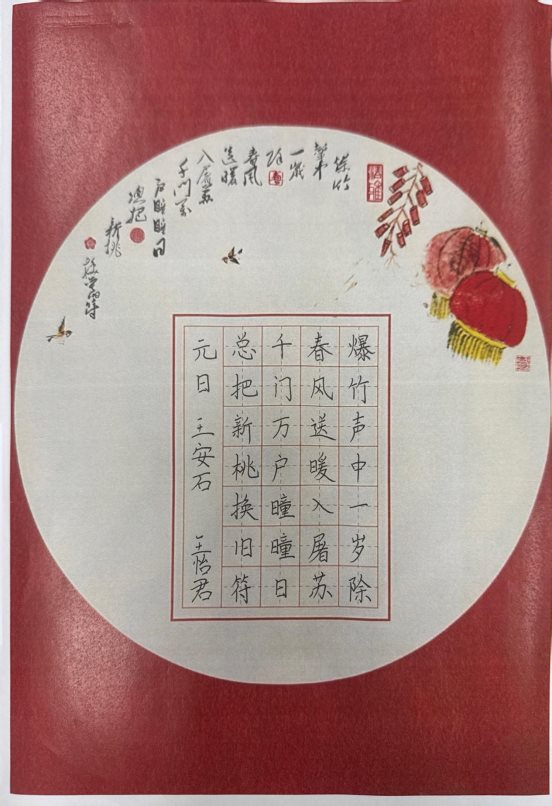 爆竹
聲中
一歲
除
春風
送暖
入屠蘇
千门萬
户曈曈日
總把
新桃
爆竹声中一岁除
春风送暖入屠苏
千门万户曈曈日
总把新桃换旧符
元日 王安石 王怡君